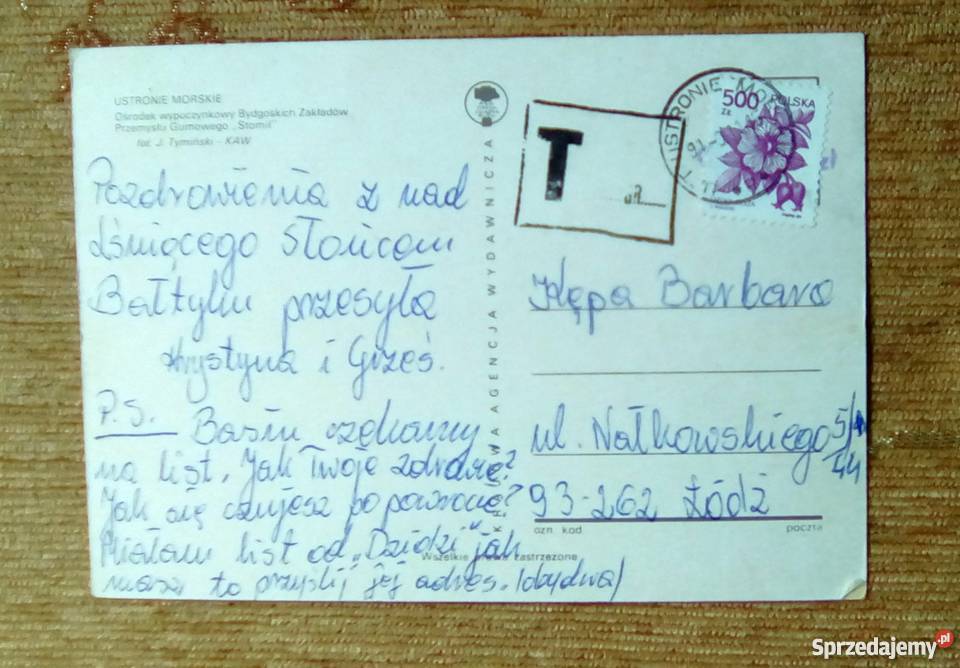 USTRONIE MORSKIE
Ośrodek wypoczynkowy Bydgoskich Zakładów
Przemysłu Gumowego „Stomil”
fot. J. Tymiński - KAW
Pozdrowienia z nad
lśniącego Słońcem
Bałtyku przesyła
Krystyna i Grześ.
P.S. Basiu czekamy
na list. Jak Twoje zdrowie?
Jak się czujesz po powrocie?
Miałam list od „Dzidzi” jak
masz to przyślij jej adres. (obydwa)
AGENCJA WYDAWNICZA
T
USTRONIE MOR
500
ZŁ
POLSKA
Kępa Barbara
ul. Nałkowskiego 5/
44
93-262 Łódź
ozn. kod
poczta
Wszelkie zastrzeżone
Sprzedajemy.pl